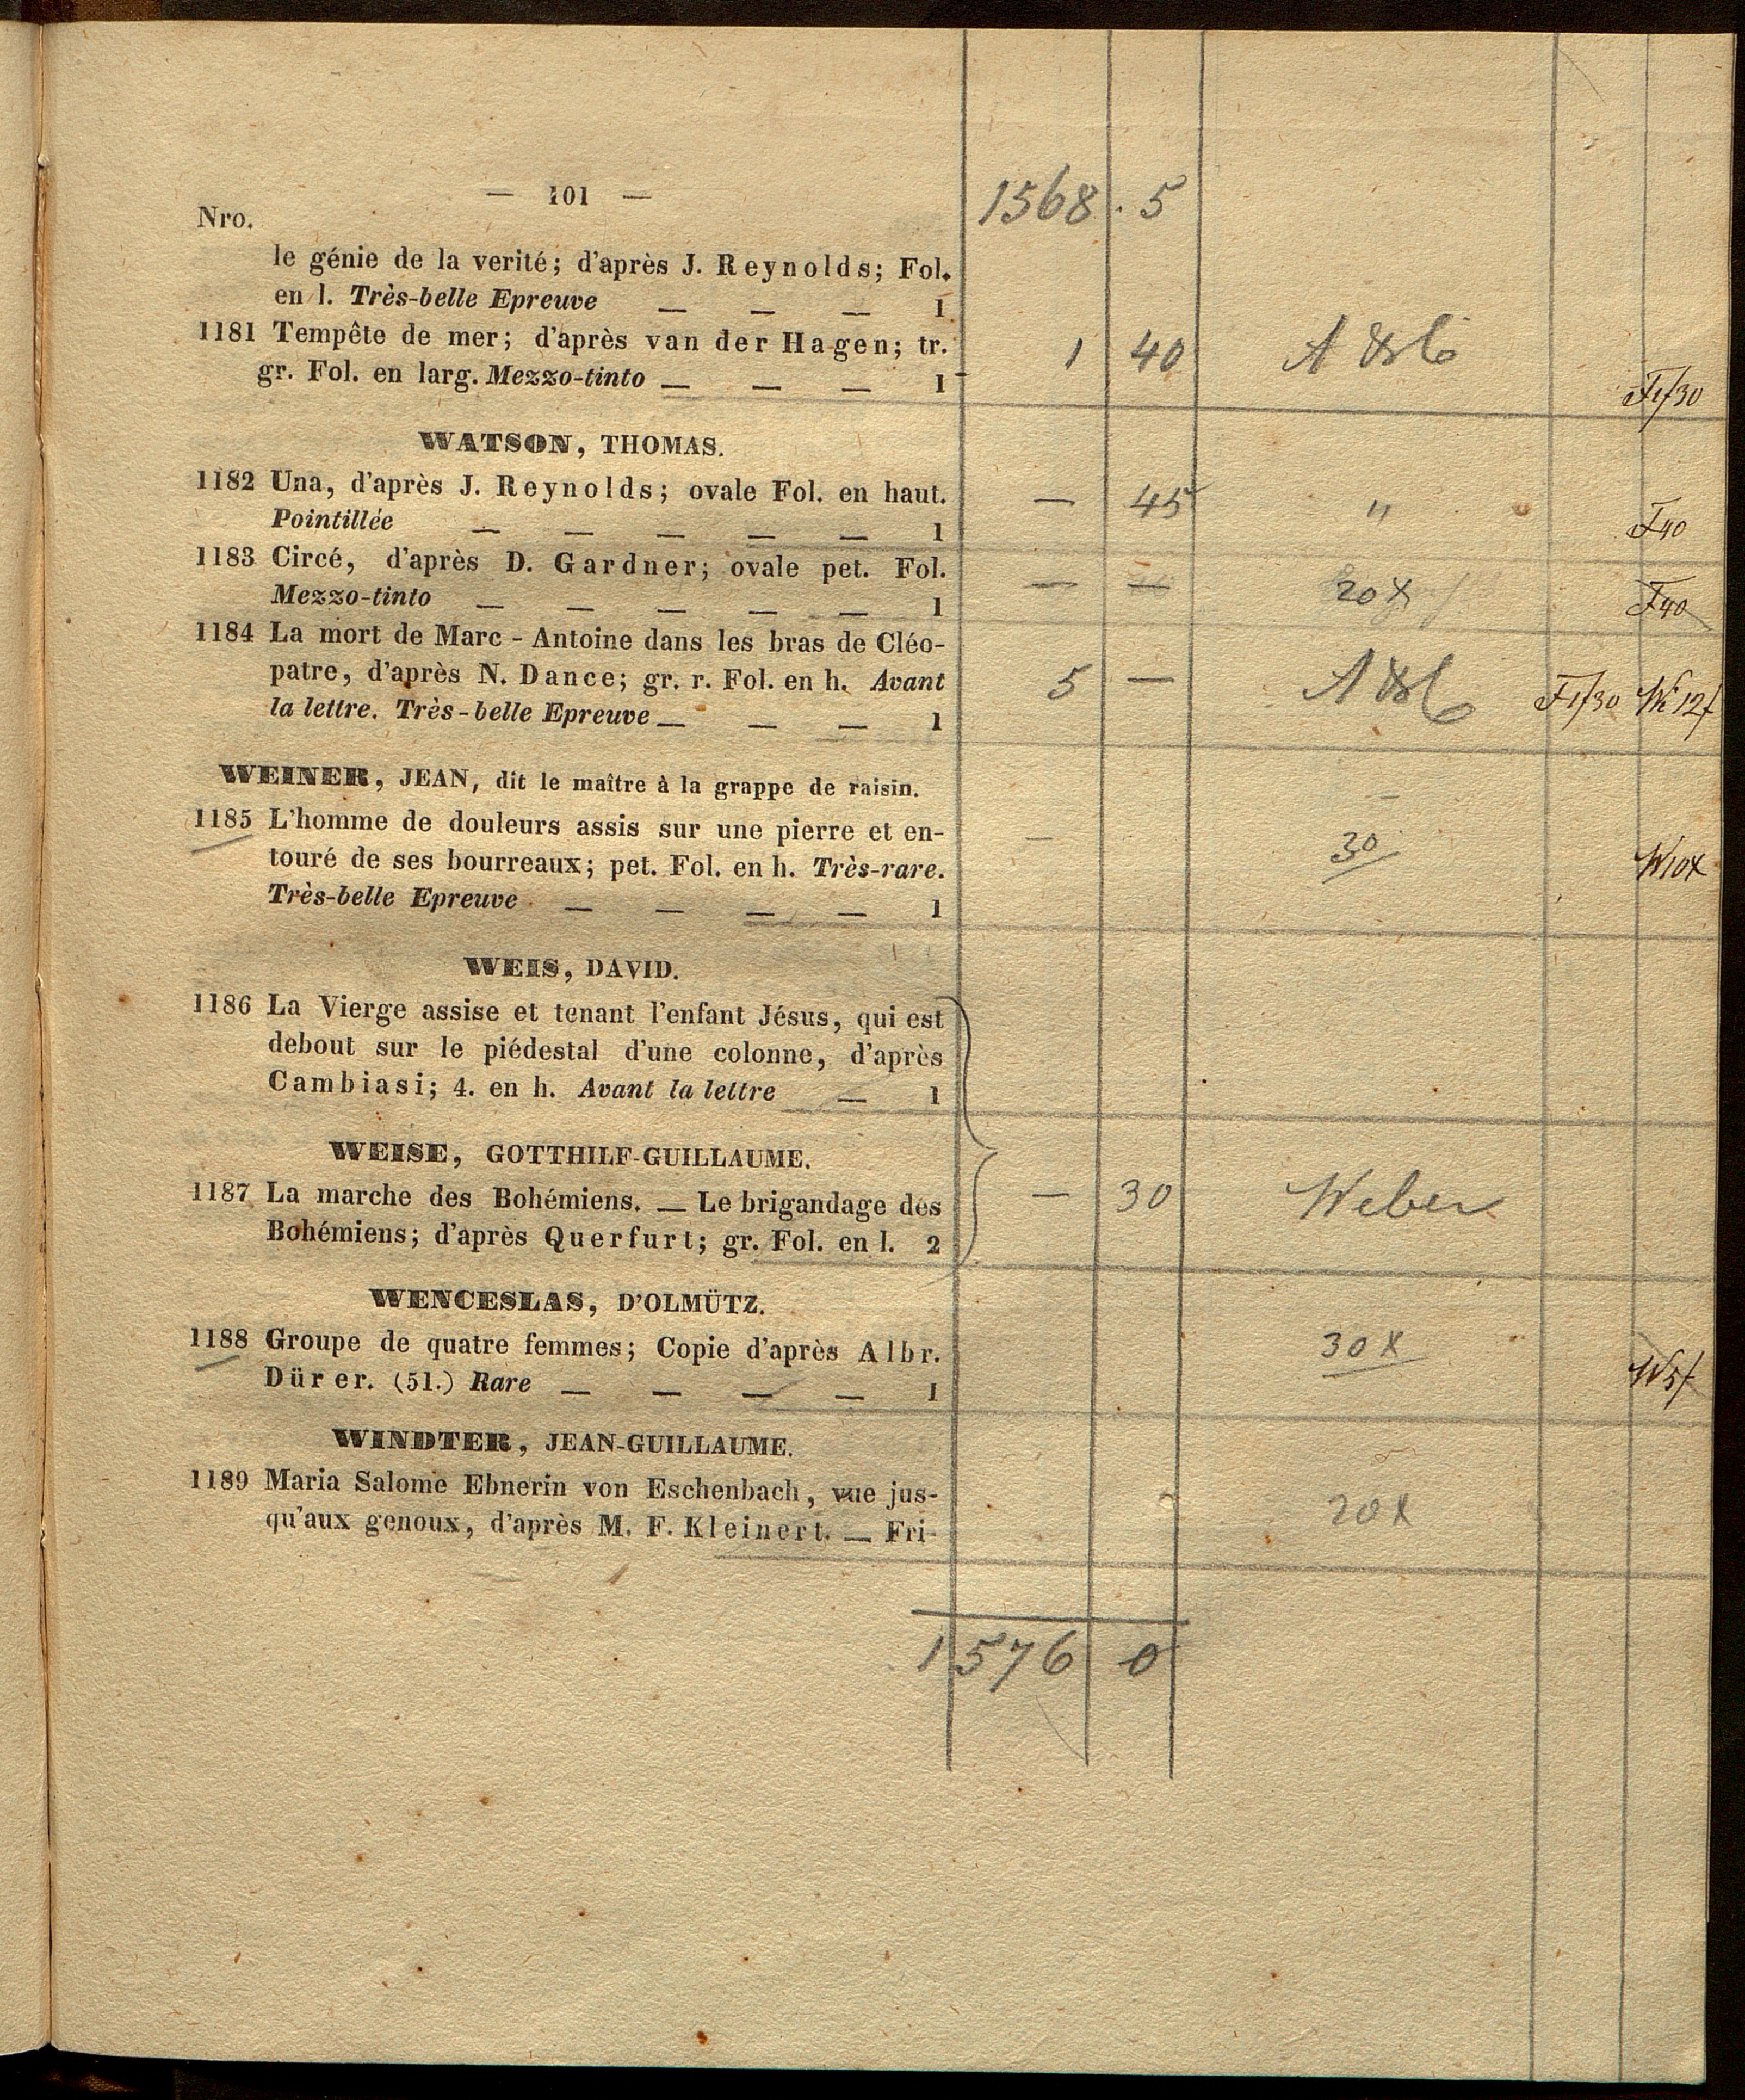 — 101 — 1568 . 5
Nro.
le génie de la verité; d'après J. Reynolds; Fol.
en l. Très-belle Epreuve — — — 1
1181 Tempête de mer; d'après van der Hagen; tr. 1 40
gr. Fol. en larg. Mezzo-tinto — — — 1 F1f30
WATSON, THOMAS.
1182 Una, d'après J. Reynolds; ovale Fol. en haut. — 45 "
Pointillée — — — — — 1 F40
1183 Circé, d'après D. Gardner; ovale pet. Fol. — — 20x
Mezzo-tinto — — — — — 1 F40
1184 La mort de Marc-Antoine dans les bras de Cléo-
patre, d'après N. Dance; gr. r. Fol. en h. Avant 5 — F1f30 W 12f
la lettre. Très-belle Epreuve — — — 1
WEINER, JEAN, dit le maître à la grappe de raisin.
1185 L'homme de douleurs assis sur une pierre et en- — 30
touré de ses bourreaux; pet. Fol. en h. Très-rare. W10x
Très-belle Epreuve — — — — 1
WEIS, DAVID.
1186 La Vierge assise et tenant l'enfant Jésus, qui est
debout sur le piédestal d'une colonne, d'après
Cambiasi; 4. en h. Avant la lettre — 1
WEISE, GOTTHILF-GUILLAUME.
1187 La marche des Bohémiens. — Le brigandage des — 30 Weber
Bohémiens; d'après Querfurt; gr. Fol. en l. 2
WENCESLAS, D'OLMÜTZ.
1188 Groupe de quatre femmes; Copie d'après Albr. 30x
Dürer. (51.) Rare — — — — 1 W5f
WINDTER, JEAN-GUILLAUME.
1189 Maria Salome Ebnerin von Eschenbach, vue jus-
qu'aux genoux, d'après M. F. Kleinert. — Fri- 20x
1576 0